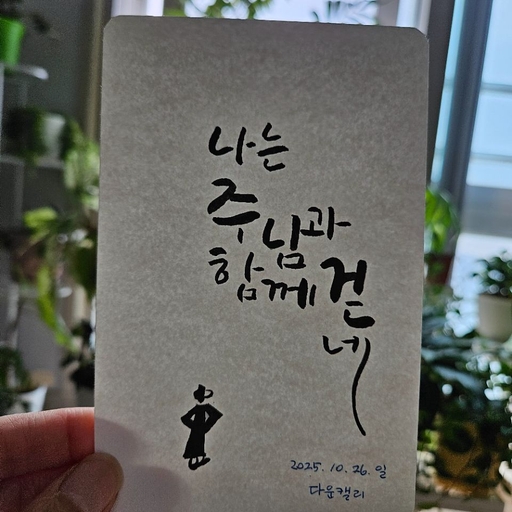 나는
주님과
함께 걷
네
2025. 10. 26. 일
다운캘리